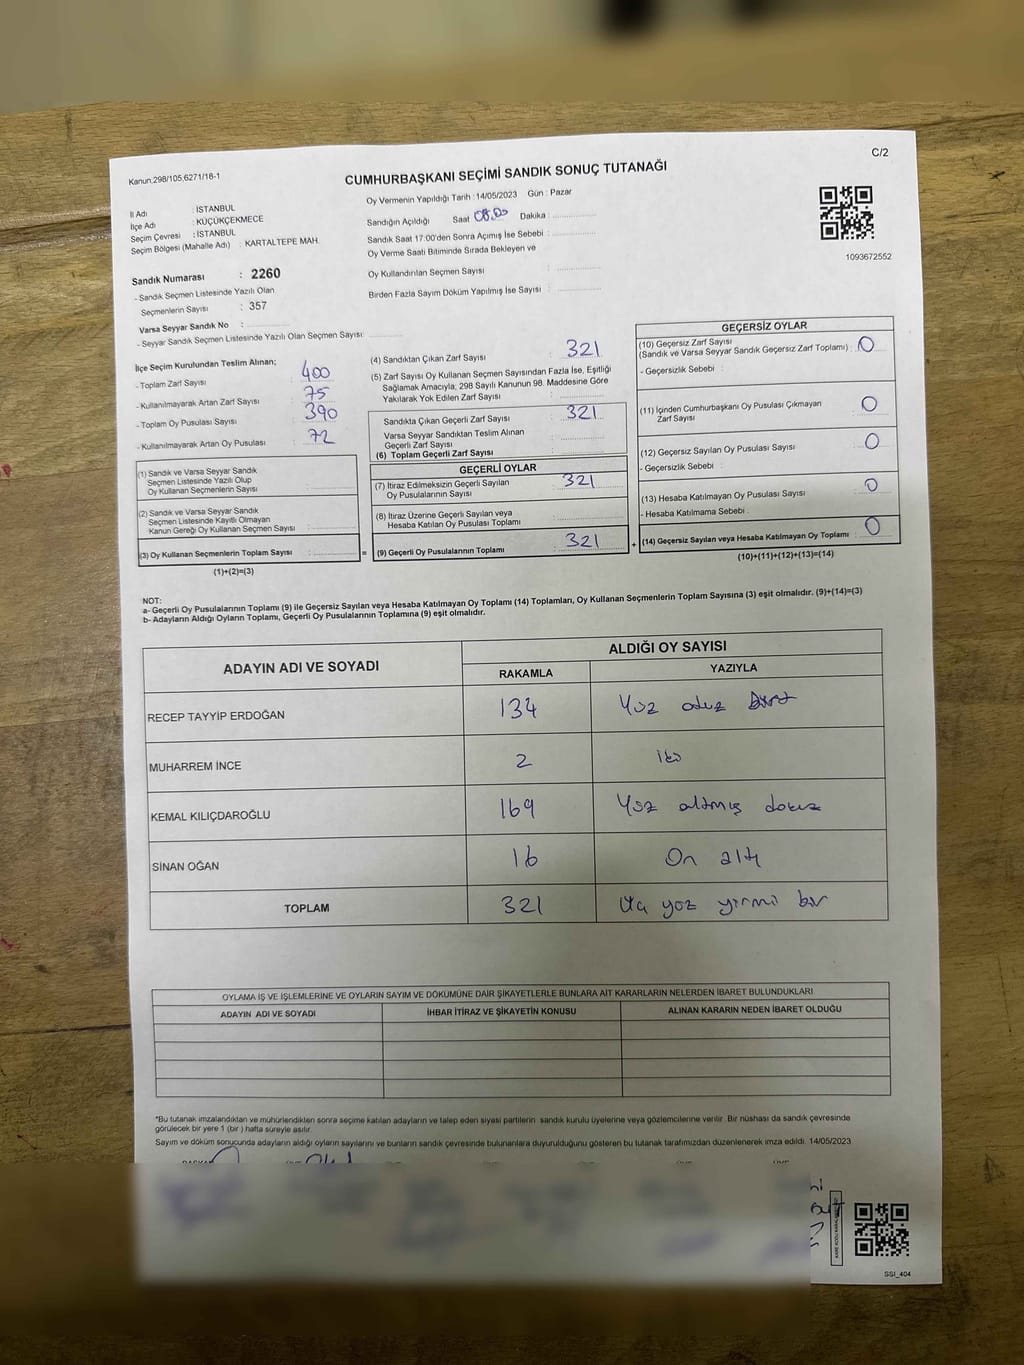 C/2
Kanun:298/105,6271/18-1
CUMHURBAŞKANI SEÇİMİ SANDIK SONUÇ TUTANAĞI
İl Adı : İSTANBUL
İlçe Adı : KÜÇÜKÇEKMECE
Seçim Çevresi : İSTANBUL
Seçim Bölgesi (Mahalle Adı) : KARTALTEPE MAH.
Sandık Numarası : 2260
- Sandık Seçmen Listesinde Yazılı Olan
Seçmenlerin Sayısı : 357
Varsa Seyyar Sandık No :
- Seyyar Sandık Seçmen Listesinde Yazılı Olan Seçmen Sayısı:
Oy Vermenin Yapıldığı Tarih : 14/05/2023 Gün : Pazar
Sandığın Açıldığı Saat 08.00 Dakika :
Sandık Saat 17:00'den Sonra Açımış İse Sebebi :
Oy Verme Saati Bitiminde Sırada Bekleyen ve
Oy Kullandırılan Seçmen Sayısı :
Birden Fazla Sayım Döküm Yapılmış İse Sayısı :
1093672552
İlçe Seçim Kurulundan Teslim Alınan;
- Toplam Zarf Sayısı : 400
- Kullanılmayarak Artan Zarf Sayısı : 75
- Toplam Oy Pusulası Sayısı : 390
- Kullanılmayarak Artan Oy Pusulası : 72
(1) Sandık ve Varsa Seyyar Sandık
Seçmen Listesinde Yazılı Olup
Oy Kullanan Seçmenlerin Sayısı :
(2) Sandık ve Varsa Seyyar Sandık
Seçmen Listesinde Kayıtlı Olmayan
Kanun Gereği Oy Kullanan Seçmen Sayısı :
(3) Oy Kullanan Seçmenlerin Toplam Sayısı : =
(1)+(2)=(3)
(4) Sandıktan Çıkan Zarf Sayısı : 321
(5) Zarf Sayısı Oy Kullanan Seçmen Sayısından Fazla İse, Eşitliği
Sağlamak Amacıyla; 298 Sayılı Kanunun 98. Maddesine Göre
Yakılarak Yok Edilen Zarf Sayısı :
Sandıkta Çıkan Geçerli Zarf Sayısı : 321
Varsa Seyyar Sandıktan Teslim Alınan
Geçerli Zarf Sayısı :
(6) Toplam Geçerli Zarf Sayısı :
GEÇERLİ OYLAR
(7) İtiraz Edilmeksizin Geçerli Sayılan
Oy Pusulalarının Sayısı : 321
(8) İtiraz Üzerine Geçerli Sayılan veya
Hesaba Katılan Oy Pusulası Toplamı :
(9) Geçerli Oy Pusulalarının Toplamı : 321 +
GEÇERSİZ OYLAR
(10) Geçersiz Zarf Sayısı
(Sandık ve Varsa Seyyar Sandık Geçersiz Zarf Toplamı) : 0
- Geçersizlik Sebebi :
(11) İçinden Cumhurbaşkanı Oy Pusulası Çıkmayan
Zarf Sayısı : 0
(12) Geçersiz Sayılan Oy Pusulası Sayısı : 0
- Geçersizlik Sebebi :
(13) Hesaba Katılmayan Oy Pusulası Sayısı : 0
- Hesaba Katılmama Sebebi :
(14) Geçersiz Sayılan veya Hesaba Katılmayan Oy Toplamı : 0
(10)+(11)+(12)+(13)=(14)
NOT:
a- Geçerli Oy Pusulalarının Toplamı (9) ile Geçersiz Sayılan veya Hesaba Katılmayan Oy Toplamı (14) Toplamları, Oy Kullanan Seçmenlerin Toplam Sayısına (3) eşit olmalıdır. (9)+(14)=(3)
b- Adayların Aldığı Oyların Toplamı, Geçerli Oy Pusulalarının Toplamına (9) eşit olmalıdır.
ADAYIN ADI VE SOYADI ALDIĞI OY SAYISI
RAKAMLA YAZIYLA
RECEP TAYYİP ERDOĞAN 134 Yüz otuz dört
MUHARREM İNCE 2 iki
KEMAL KILIÇDAROĞLU 169 Yüz altmış dokuz
SİNAN OĞAN 16 On altı
TOPLAM 321 Üç yüz yirmi bir
OYLAMA İŞ VE İŞLEMLERİNE VE OYLARIN SAYIM VE DÖKÜMÜNE DAİR ŞİKAYETLERLE BUNLARA AİT KARARLARIN NELERDEN İBARET BULUNDUKLARI
ADAYIN ADI VE SOYADI İHBAR İTİRAZ VE ŞİKAYETİN KONUSU ALINAN KARARIN NEDEN İBARET OLDUĞU
*Bu tutanak imzalandıktan ve mühürlendikten sonra seçime katılan adayların ve talep eden siyasi partilerin sandık kurulu üyelerine veya gözlemcilerine verilir. Bir nüshası da sandık çevresinde
görülecek bir yere 1 (bir ) hafta süreyle asılır.
Sayım ve döküm sonucunda adayların aldığı oyların sayılarını ve bunların sandık çevresinde bulunanlara duyurulduğunu gösteren bu tutanak tarafımızdan düzenlenerek imza edildi. 14/05/2023
SSI_404